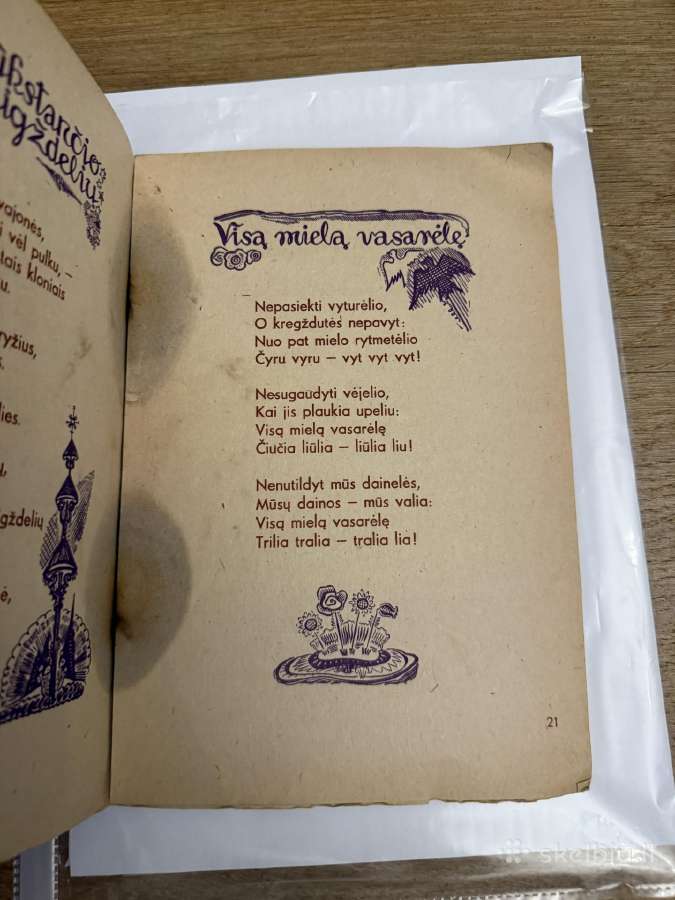 vajonės,
vėl pulku, –
kloniais
ryžius,
lies.
gždelių
Visą mielą vasarėlę
Nepasiekti vyturėlio,
O kregždutės nepavyt:
Nuo pat mielo rytmetėlio
Čyru vyru – vyt vyt vyt!
Nesugaudyti vėjelio,
Kai jis plaukia upeliu:
Visą mielą vasarėlę
Čiučia liūlia – liūlia liu!
Nenutildyt mūs dainelės,
Mūsų dainos – mūs valia:
Visą mielą vasarėlę
Trilia tralia – tralia lia!
21
skelbiu.lt